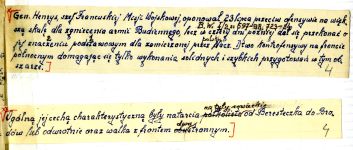 Gen. Henrys, szef Francuskiej Misji Wojskowej, oponował 23 lipca przeciw ofensywie na więk
szą skalę dla zgniecenia armii Budiennego, lecz w cztery dni później dał się przekonać o
jej znaczeniu podstawowym dla zamierzonej przez Nacz. D-two kontrofensywy na froncie
północnym domagając się tylko wykonania solidnych i szybkich przygotowań w tym ob
szarze.
4
Ogólną jej cechą charakterystyczną były natarcia od Beresteczka do Bro
dów lub odwrotnie oraz walka z frontem
4